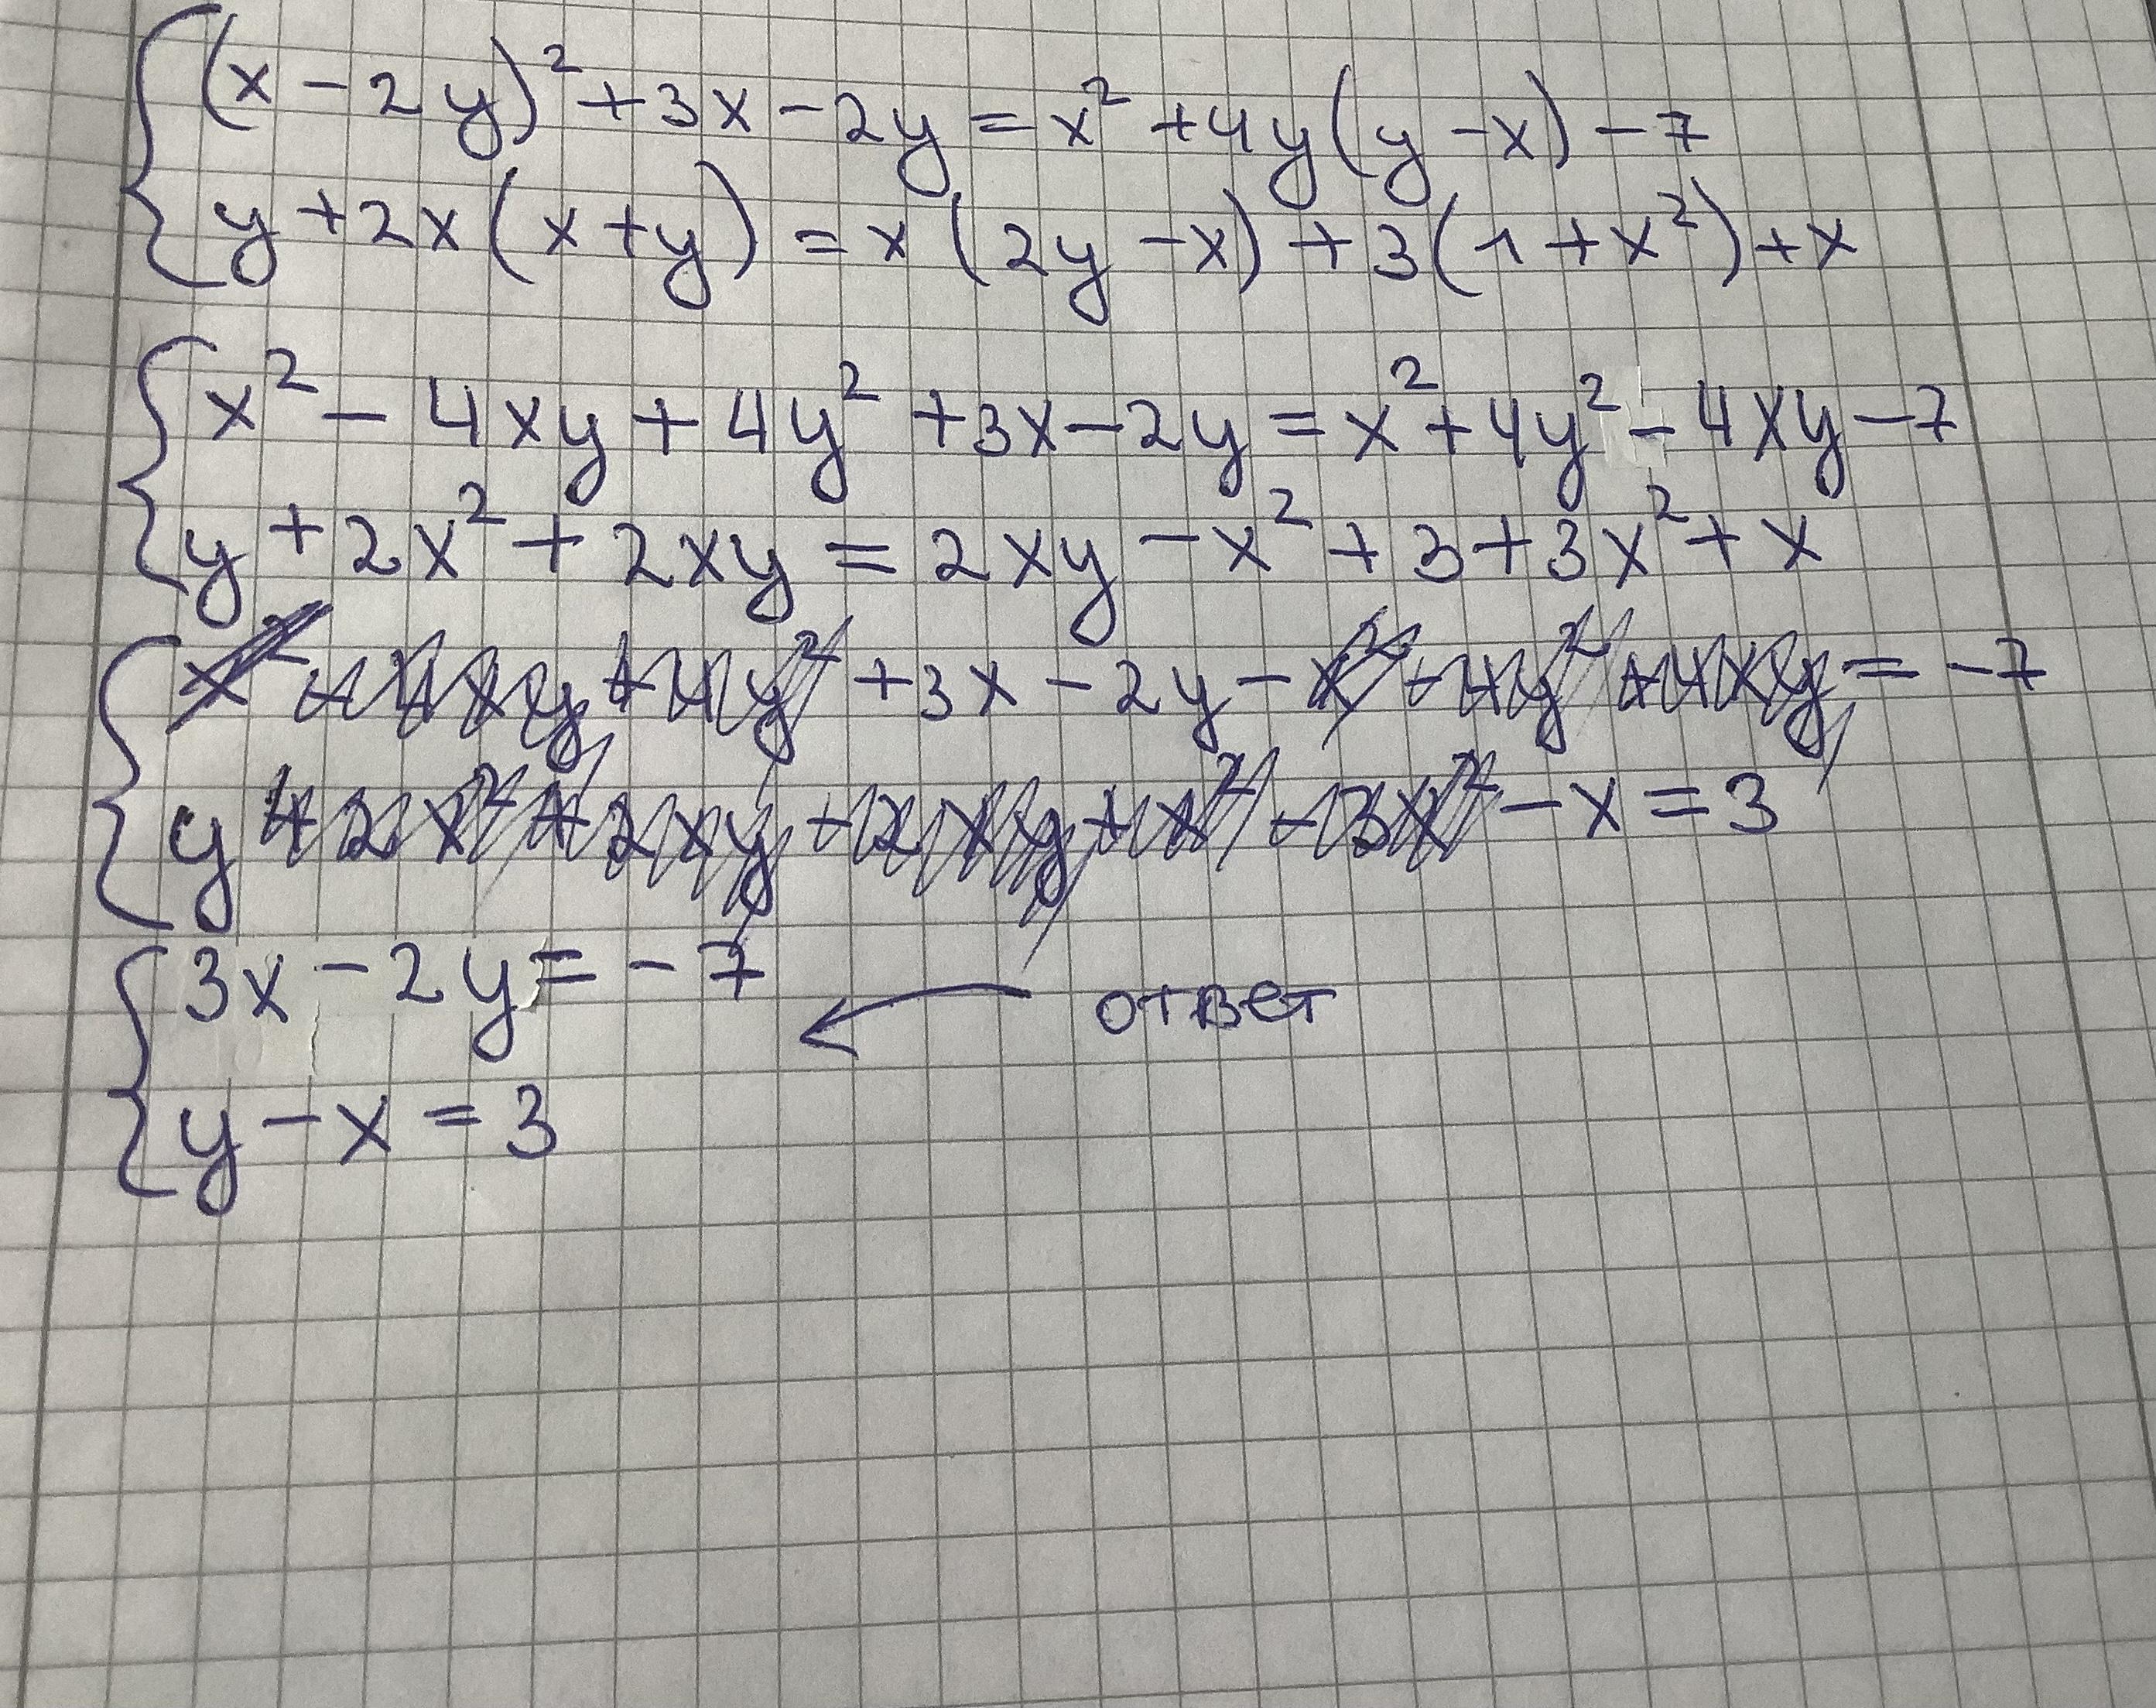 (x - 2y)² + 3x - 2y = x² + 4y(y - x) - 7
y + 2x(x + y) = x(2y - x) + 3(1 + x²) + x
x² - 4xy + 4y² + 3x - 2y = x² + 4y² - 4xy - 7
y + 2x² + 2xy = 2xy - x² + 3 + 3x² + x
x² - 4xy + 4y² + 3x - 2y - x² - 4y² + 4xy = -7
y + 2x² + 2xy - 2xy + x² - 3x² - x = 3
3x - 2y = -7
← ответ
y - x = 3